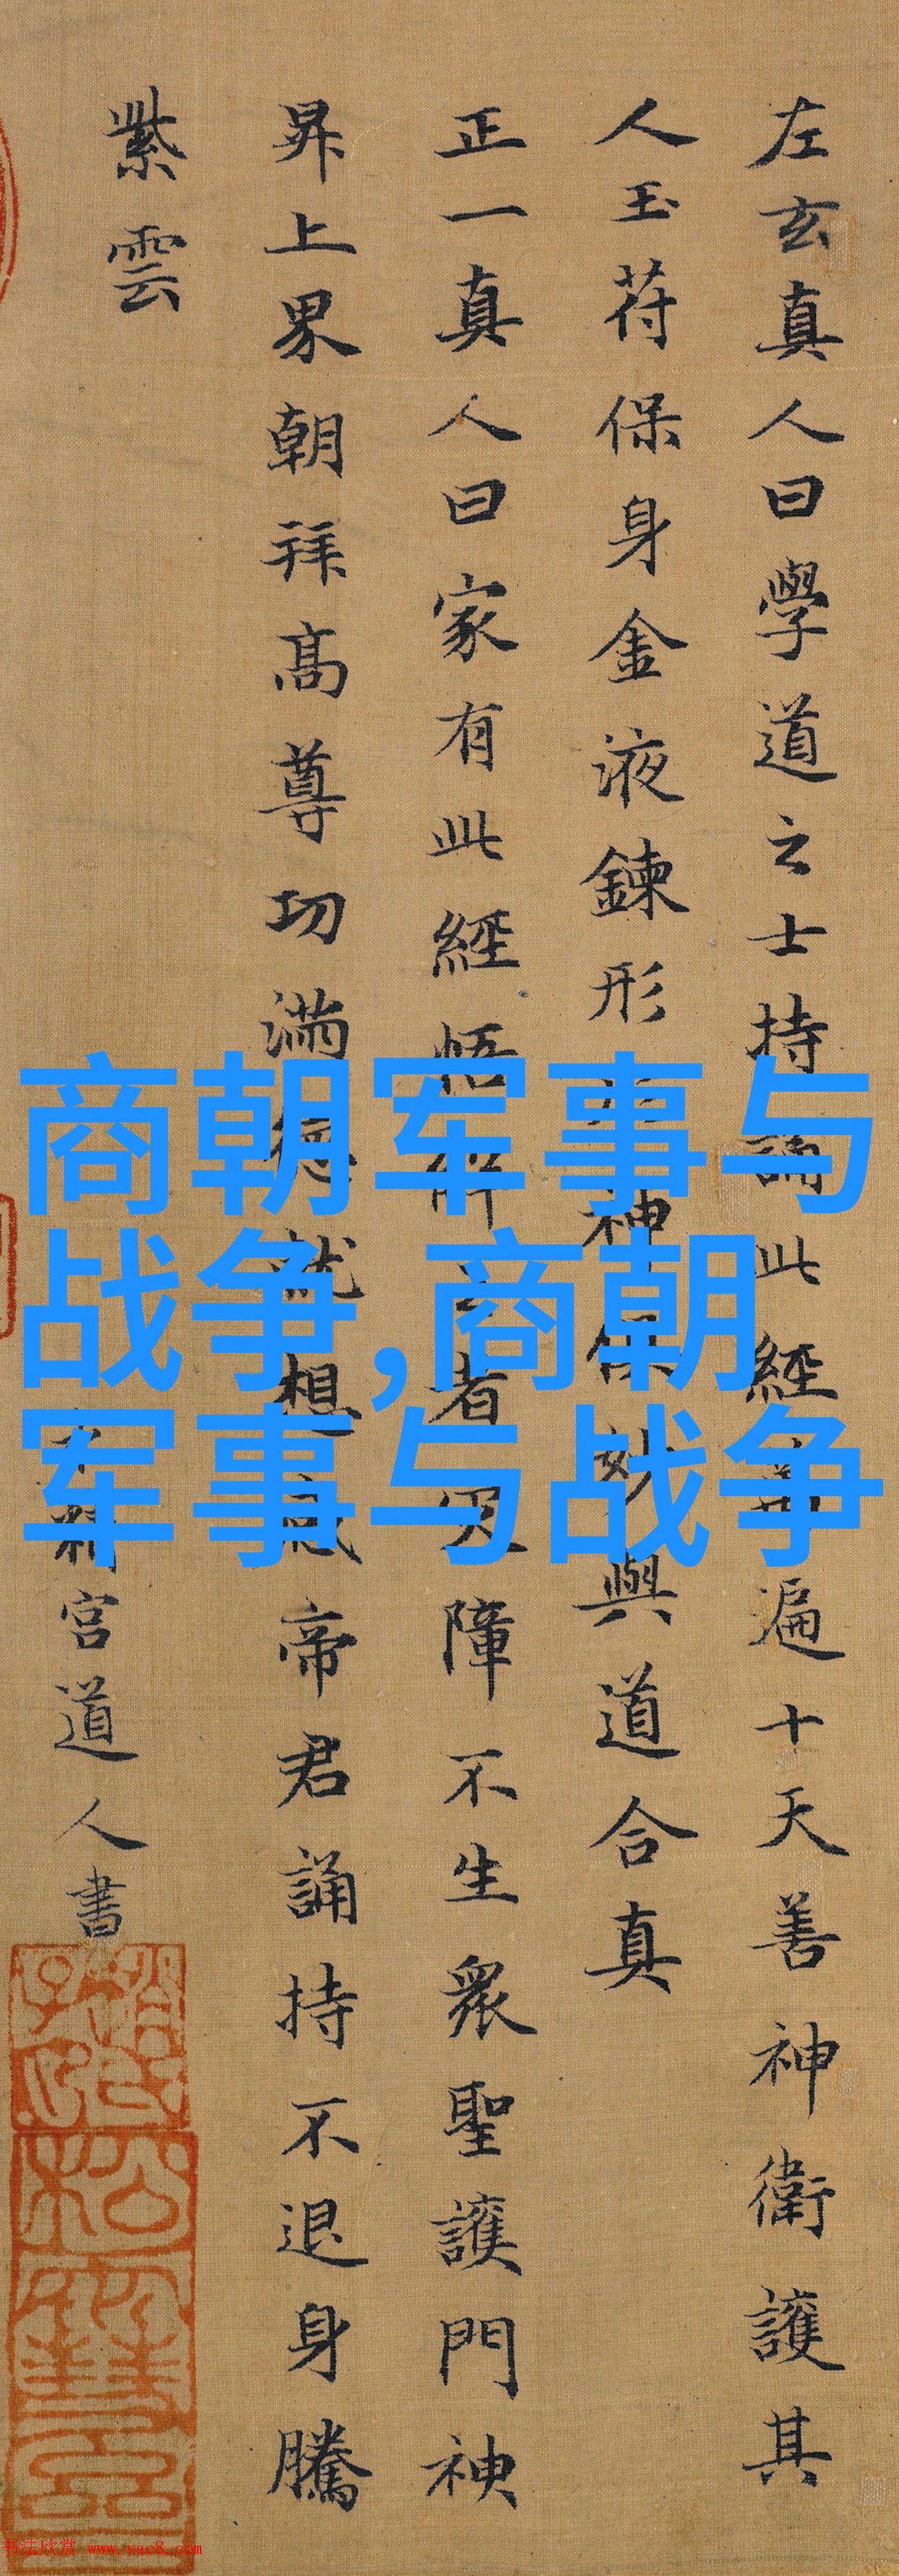 左玄真人曰學道之士持誦此經遍十天善神衛護其
人玉苻保身金液鍊形神妙與道合真
正一真人曰家有此經悟解者灾障不生衆聖護門神
昇上界朝拜高尊功满德就想感帝君誦持不退身騰
紫雲
精宮道人書
商朝军事与
战争,商朝
军事与战争
书法欣赏 www.yac8.com